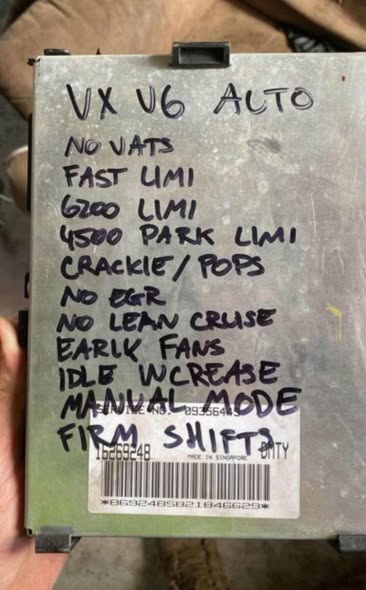 VX V6 AUTO
NO VATS
FAST LIMI
6200 LIMI
4500 PARK LIMI
CRACKIE/POPS
NO EGR
NO LEAN CRUISE
EARLY FANS
IDLE INCREASE
MANUAL MODE
SERVICE NO. 0935644
FIRM SHIFTS
16269248 MADE IN SINGAPORE DMTY
*869248S021846629*